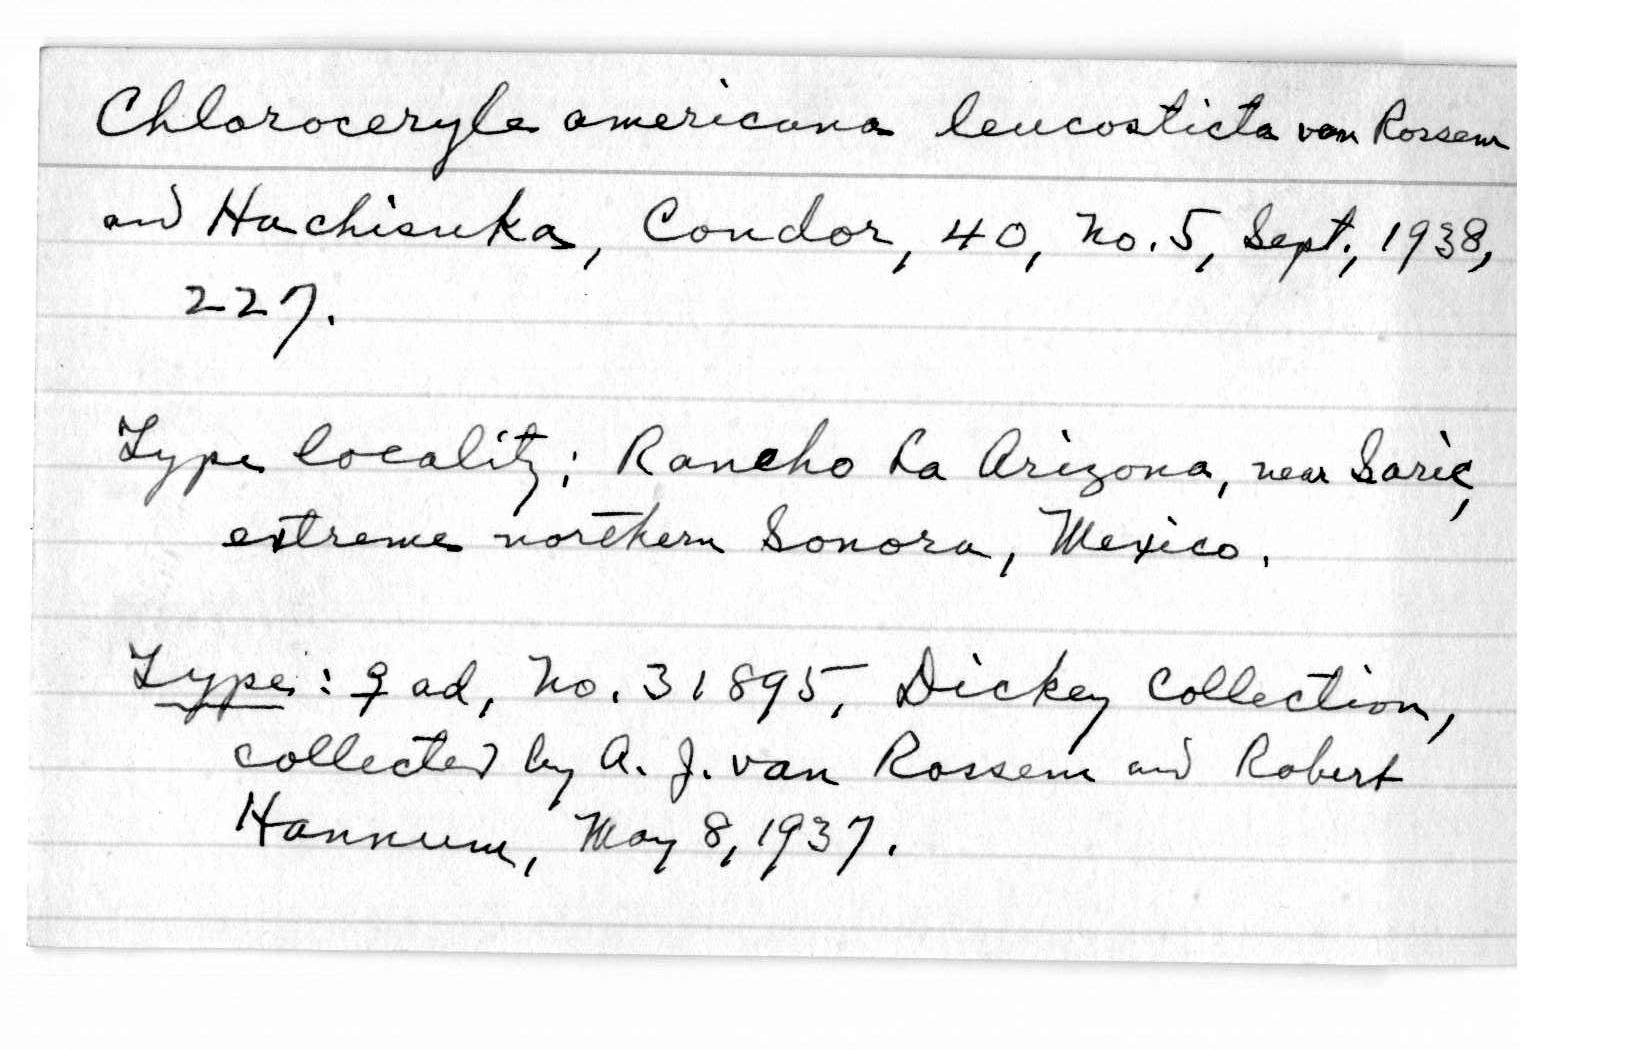 Chloroceryle americana leucosticta van Rossem
and Hachisuka, Condor, 40, No. 5, Sept., 1938,
227.
Type locality: Rancho La Arizona, near Saric,
extreme northern Sonora, Mexico.
Type: ♀ ad, No. 31895, Dickey Collection,
collected by A. J. van Rossem and Robert
Hannum, May 8, 1937.